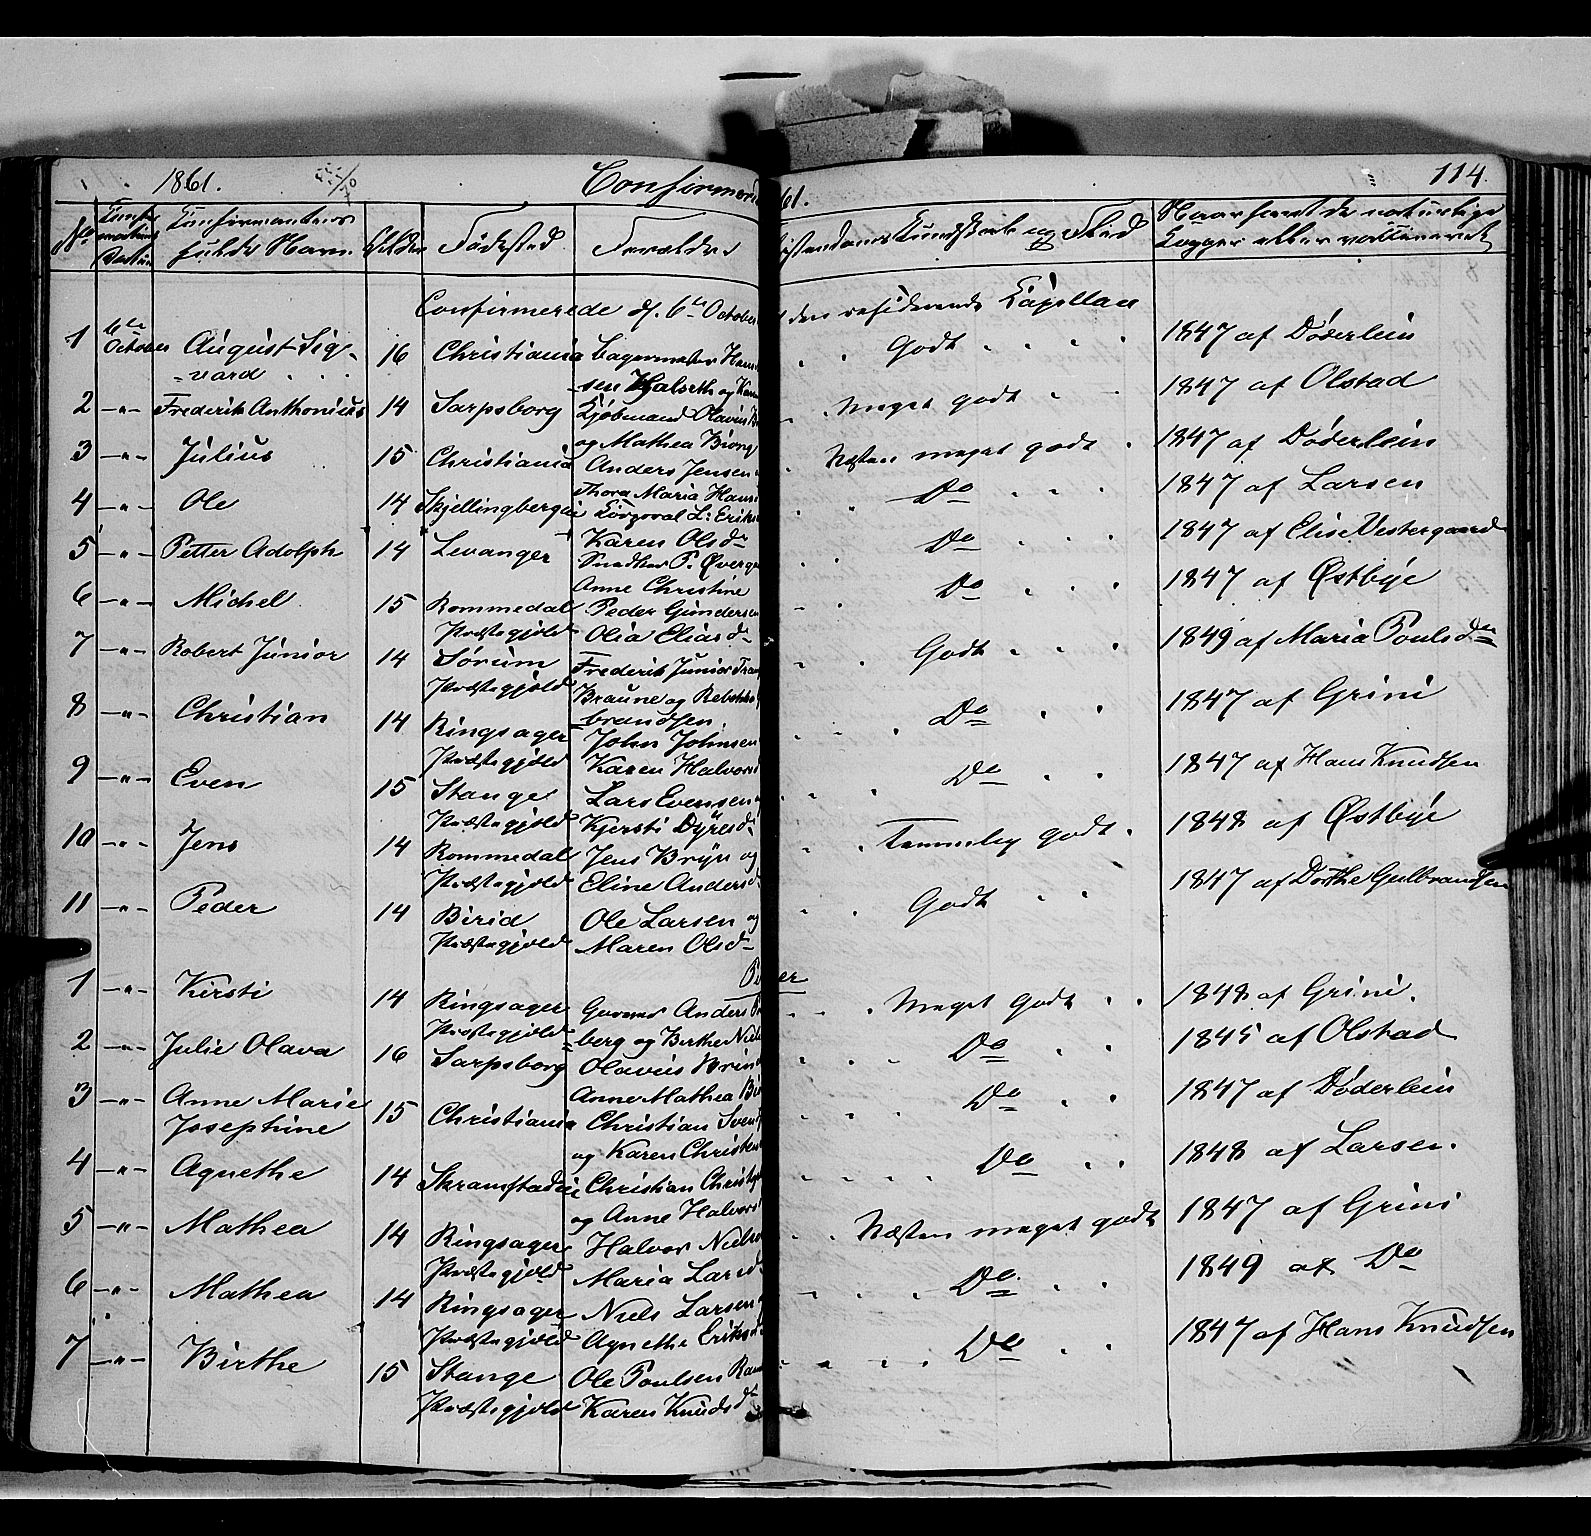 1861.
Confirmere
61.
114.
No
Confirmantens
fulde Navn.
Alder
Fødested
Forældre
Christendoms Kundskab og Flid
Naar havt de naturlige
Kopper eller vaccineret
Confirmerede d. 6te October
den residerende Kapellan
1 6te October August Sig- 16 Christiania Bagermester Han Godt 1847 af Døderlein
vard sen Halseth og Kar
2 -"- Frederik Anthonius 14 Sarpsborg Kjøbmand Olavius B Meget godt 1847 af Olstad
og Mathea Biong
3 -"- Julius 15 Christiania Anders Jensen Næsten meget godt 1847 af Døderlein
Thora Maria Hans
4 -"- Ole 14 Skjellingberg Corporal L: Eriks Do 1847 af Larsen
Karen Olsdr
5 -"- Petter Adolph 14 Levanger Snedker P. Øverg Do 1847 af Elise Vestergaard
Anne Christine
6 -"- Michel 15 Rommedal Peder Gundersen Do 1847 af Østbye
Præstegjeld Olia Eliasd-
7 -"- Robert Junior 14 Sørum Frederik Junior Godt 1849 af Maria Poulsdr
Præstegjeld Braune og Rebekka
8 -"- Christian 14 Ringsager brandsen Do 1847 af Grini
John Johnsen
Præstegjeld Karen Halvors
9 -"- Even 15 Stange Lars Evensen Do 1847 af Hans Knudsen
Præstegjeld Kjersti Dyresd.
10 -"- Jens 14 Rommedal Jens Bryn og Temmelig godt 1848 af Østbye
Præstegjeld Eline Andersd
11 -"- Peder 14 Birid Ole Larsen og Godt 1847 af Dorthe Gulbrandsen
Præstegjeld Maren Olsd-
Piger
1 -"- Kirsti 14 Ringsager Garver Anders Meget Godt 1848 af Grini.
Præstegjeld berg og Birthe Niels
2 -"- Julie Olava 16 Sarpsborg Olavius Do 1845 af Olstad
Anne Mathea Bi
3 -"- Anne Marie 15 Christiania Christian Svend Do 1847 af Døderlein
Josephine og Karen Christen
4 -"- Agnethe 14 Skramstad Christian Christ Do 1848 af Larsen.
og Anne Halvors
5 -"- Mathea 14 Ringsager Halvor Niels Næsten meget godt 1847 af Grini
Præstegjeld Maria Larsd.
6 -"- Mathea 14 Ringsager Niels Larsen Do 1849 af Do
Præstegjeld Agnethe Eriksd.
7 -"- Birthe 15 Stange Ole Poulsen Do 1847 af Hans Knudsen
Præstegjeld Karen Knudsdr